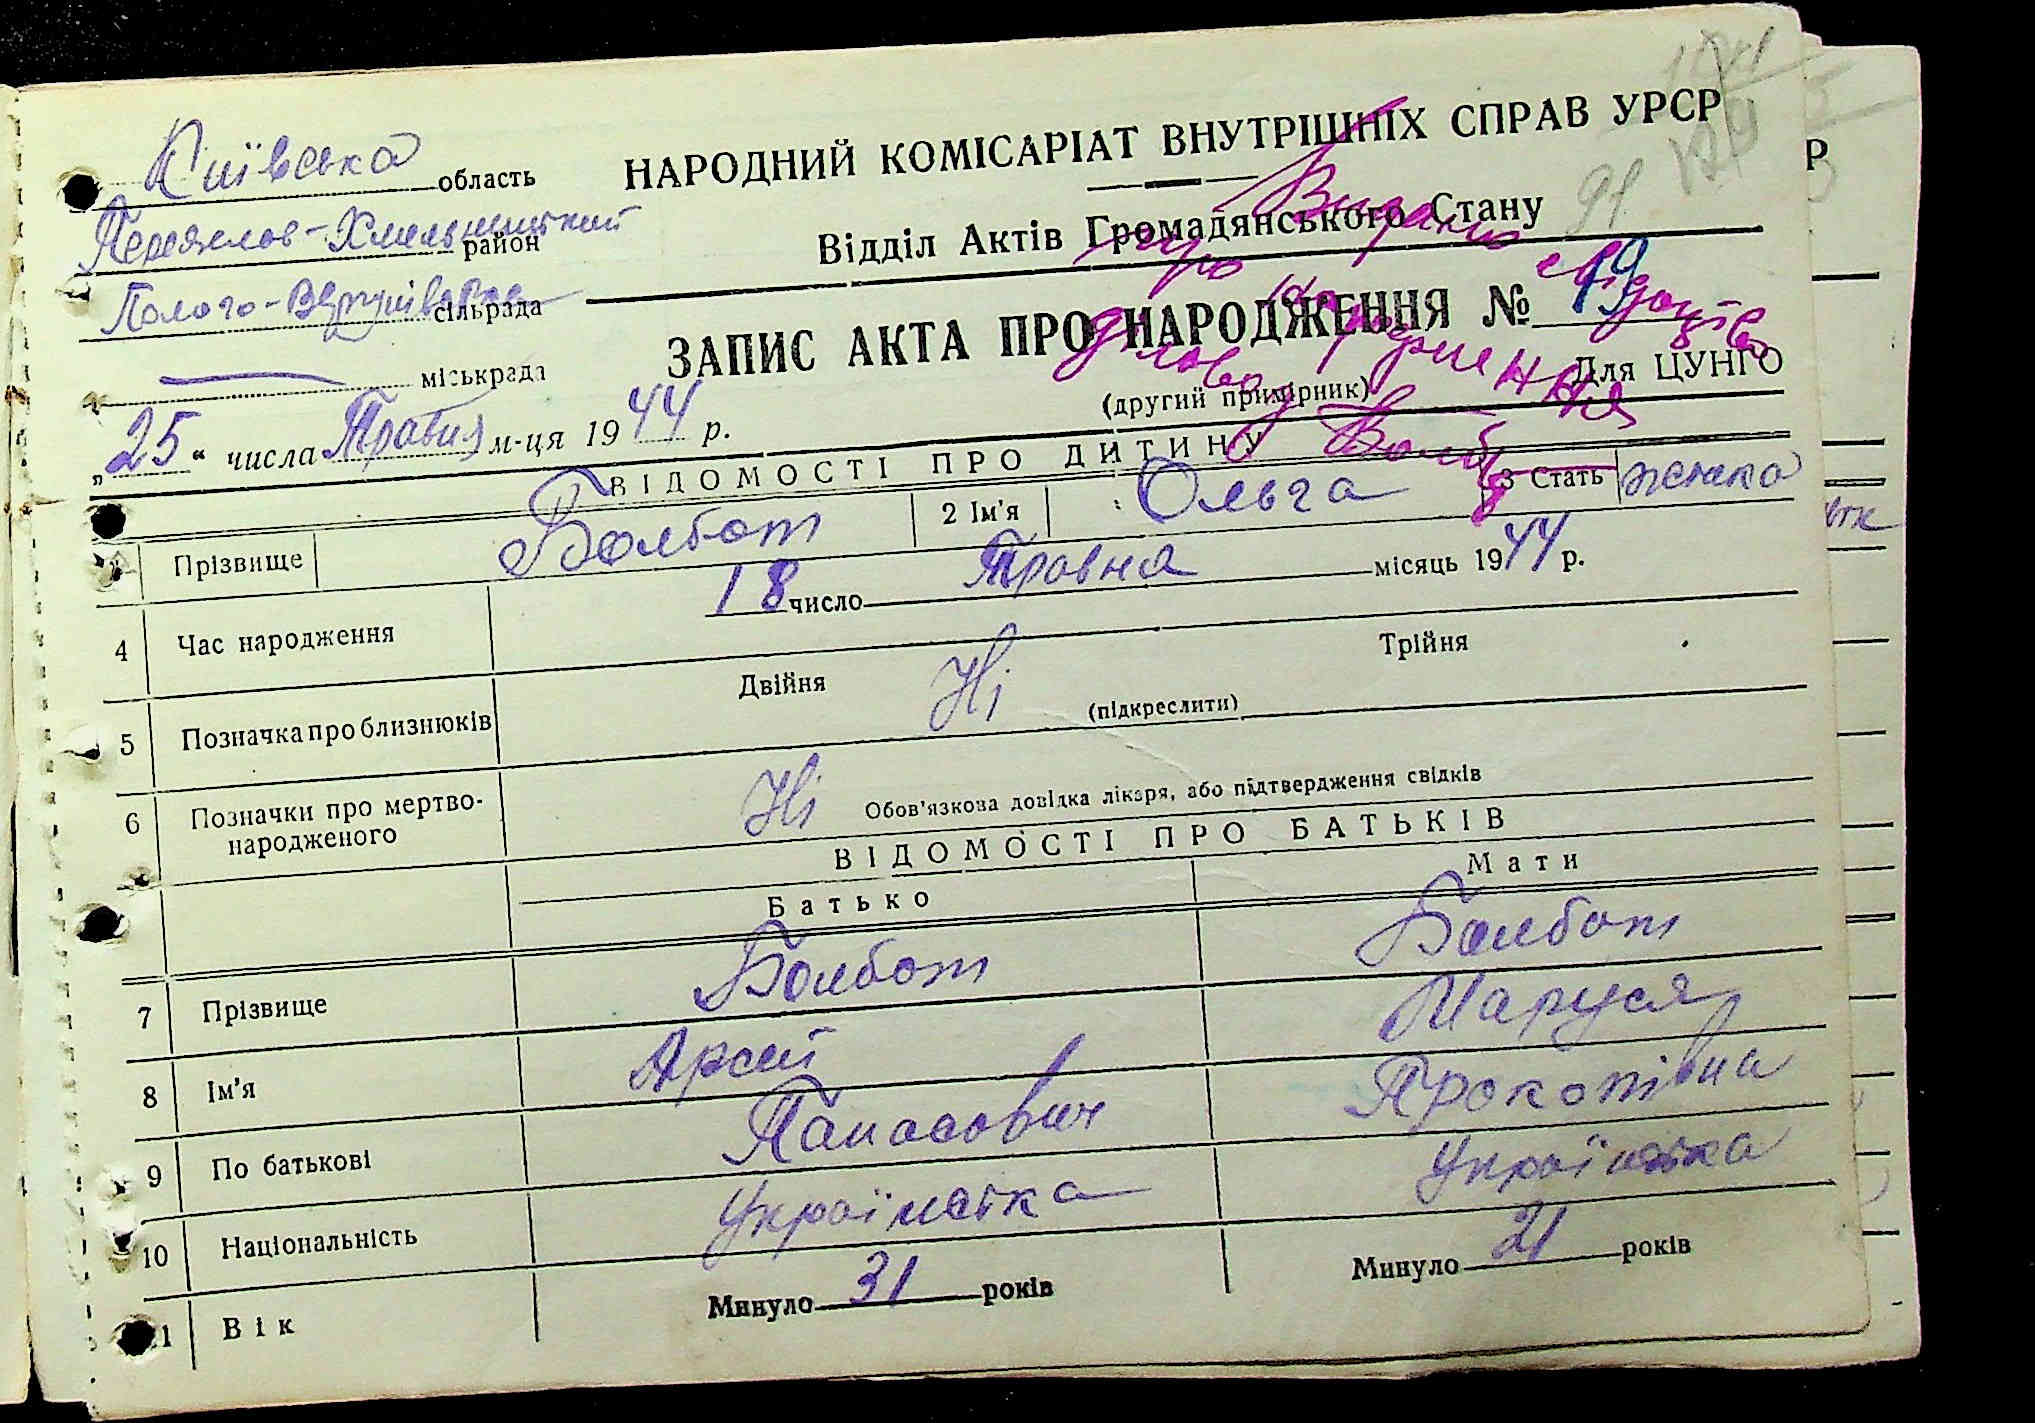 Київська область
Переяслов-Хмельницький район
Полого-Вергунівська сільрада
міськрада
„25“ числа Травня м-ця 1944 р.
НАРОДНИЙ КОМІСАРІАТ ВНУТРІШНІХ СПРАВ УРСР
Відділ Актів Громадянського Стану
91
ЗАПИС АКТА ПРО НАРОДЖЕННЯ № 19
(другий примірник)
Для ЦУНГО
Видано
про народження
ВІДОМОСТІ ПРО ДИТИНУ
Прізвище Болбот 2 Ім'я Ольга 3 Стать жіноча
4 Час народження 18 число Травня місяць 1944 р.
5 Позначка про близнюків Двійня Ні (підкреслити) Трійня
6 Позначки про мертво-
народженого Ні Обов'язкова довідка лікаря, або підтвердження свідків
ВІДОМОСТІ ПРО БАТЬКІВ
Батько Мати
7 Прізвище Болбот Болбот
8 Ім'я Арсій Маруся
9 По батькові Панасович Прокопівна
10 Національність Українська Українська
11 Вік Минуло 31 років Минуло 21 років